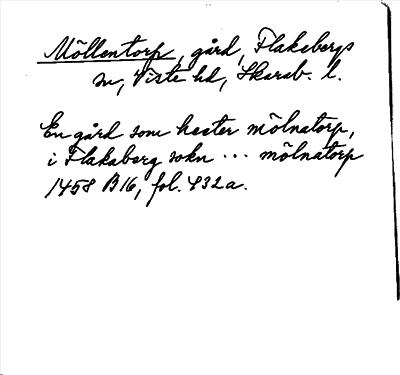 Möllentorp, gård, Flakebergs
sn, Viste hd, Skarab. l.
En gård som heeter mölnatorp,
i Flakaberg sokn ... mölnatorp
1458 B16, fol. 432a.